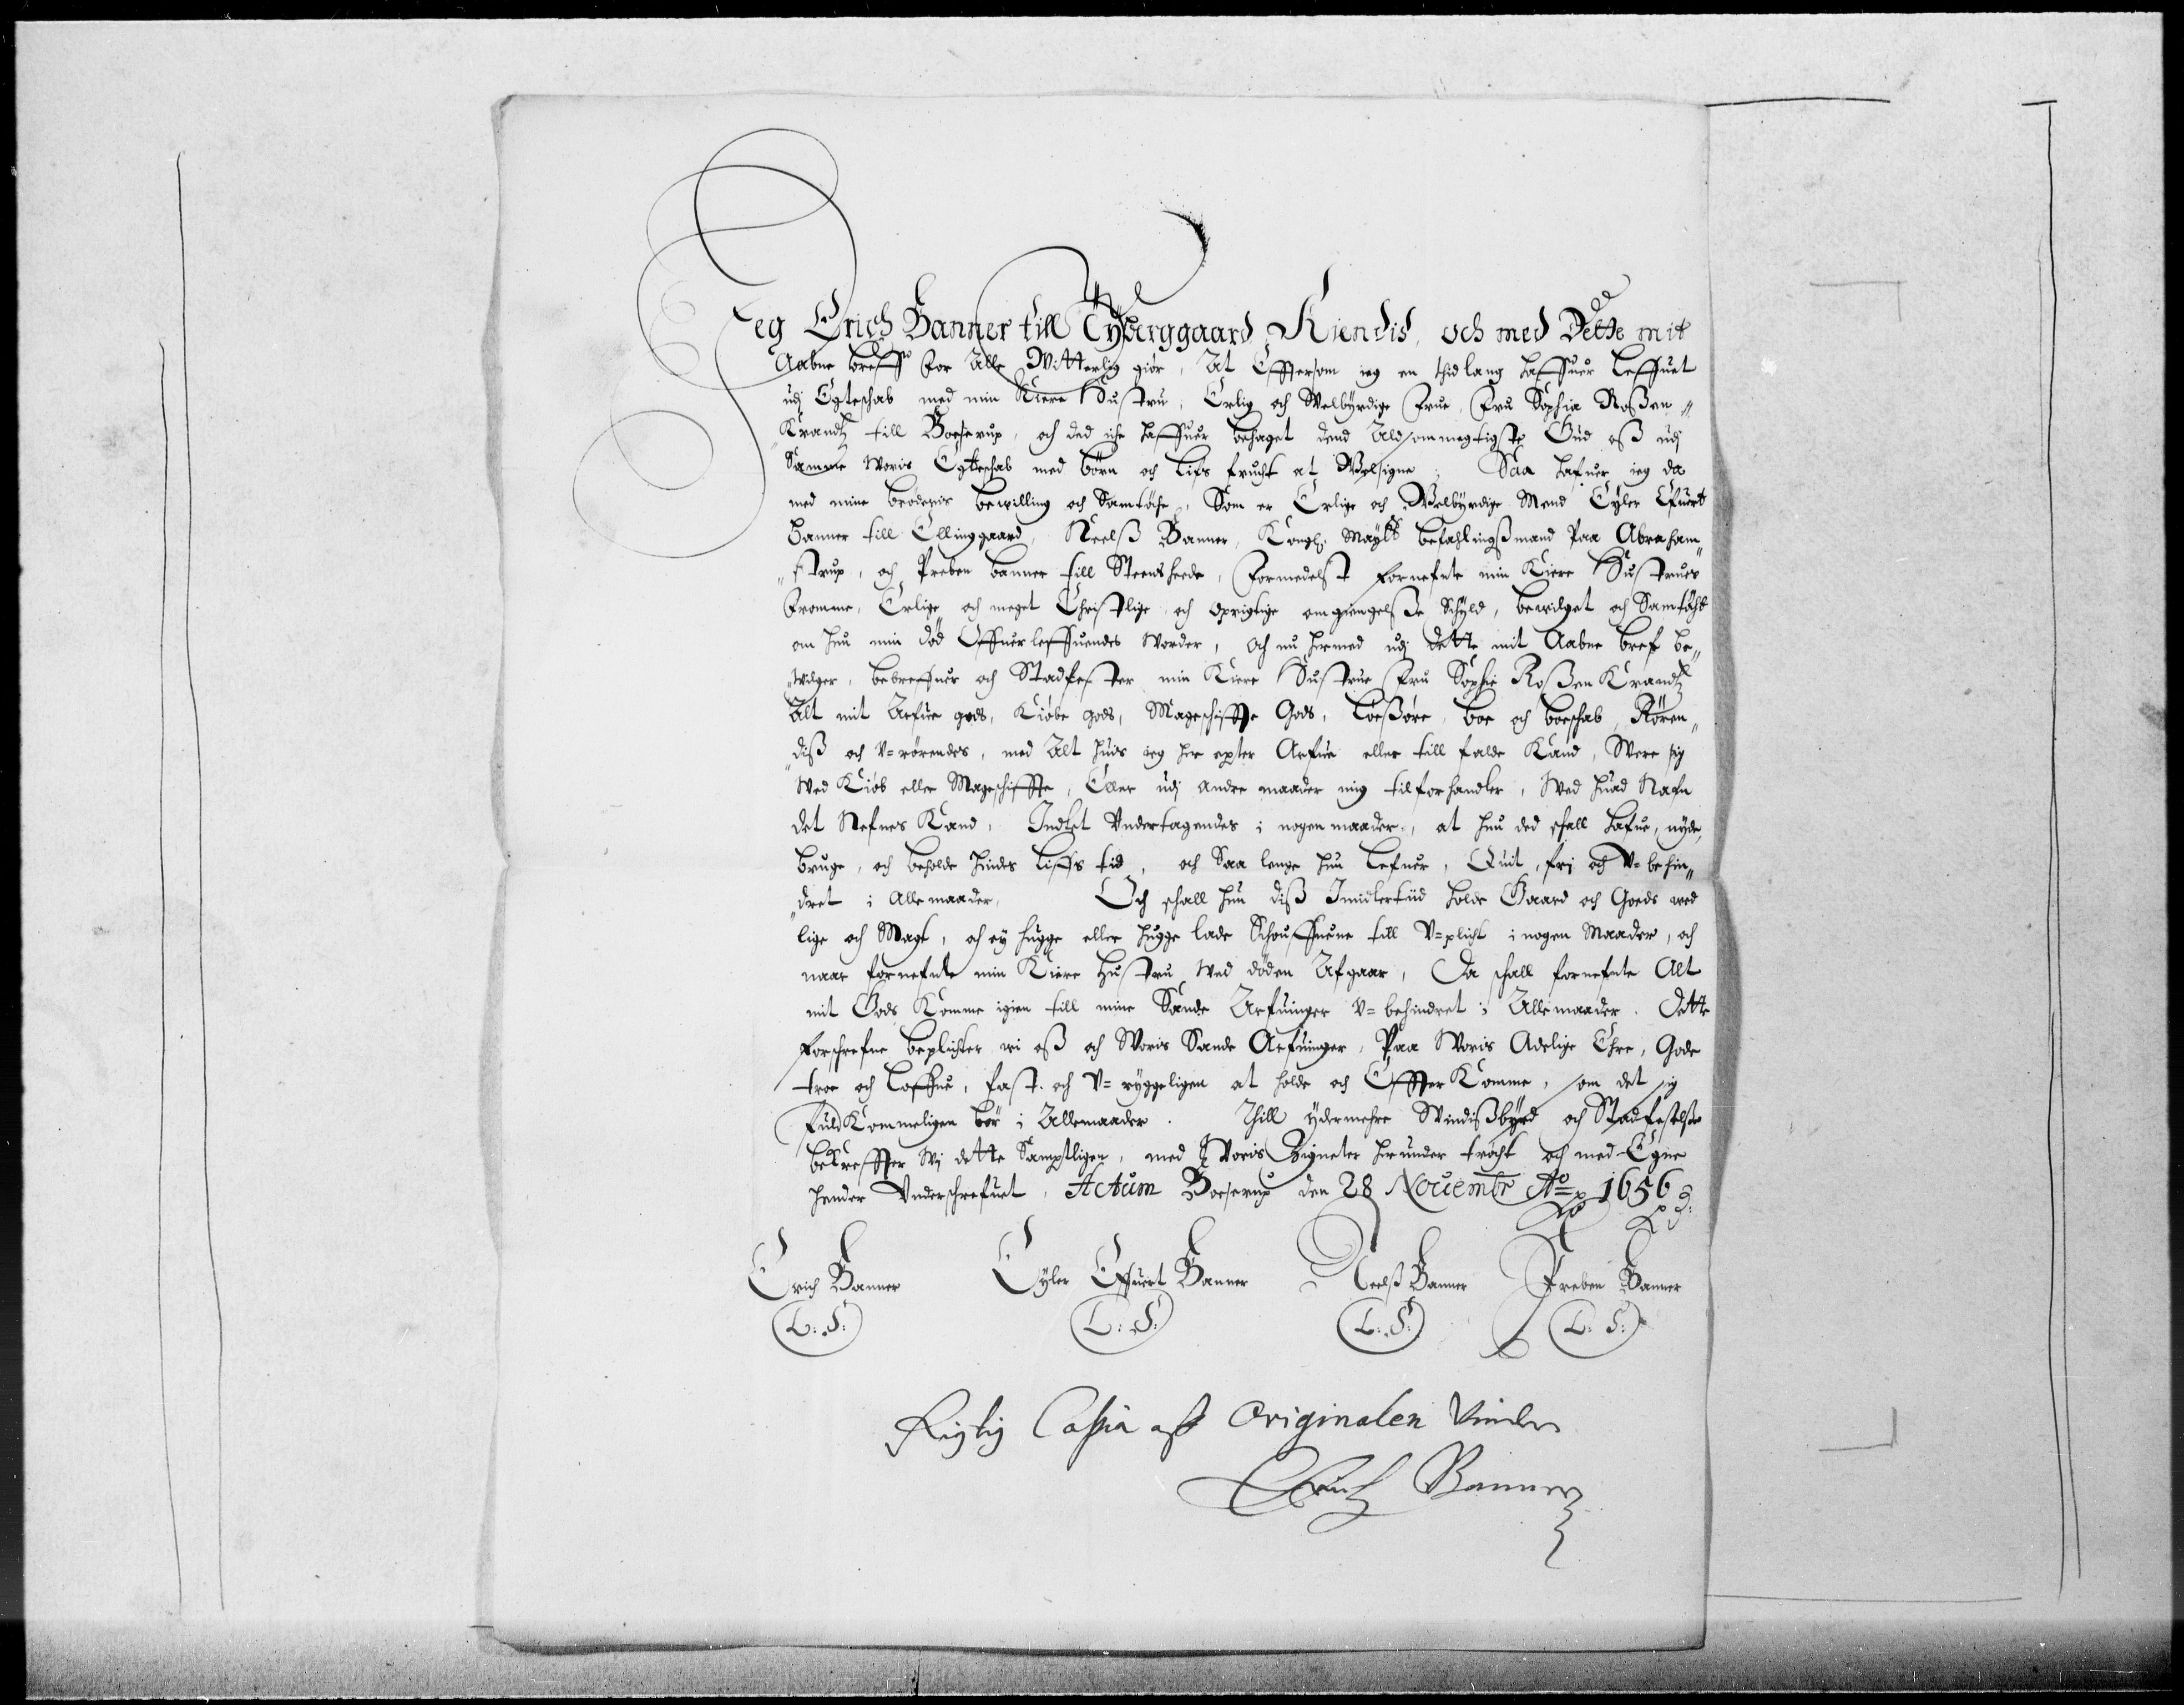 Jeg Erich Banner till Tÿbierggaard Kiendis, och med Dette mit
Aabne breff for Alle Witterlig giør, At Efftersom ieg en thidlang haffuer Leffuet
udj Egteschab med min Kiere Hustru, Erlig och Welbÿrdige Frue, Fru Sophia Roßen„
„Krandtz till Boeserup, och ded iche haffuer behaget dend Aldsommegtigste Gud oß udj
Samme Woris Egteschab med børn och lifs frucht at Welsigne; Saa hafuer ieg da
med mine brøderis bewilling och Samtøche, Som er Erlige och Welbÿrdige Mend Eÿler Efuert
Banner till Ellinggaard, Neelß Banner, Kongl. Maÿtts befahlingßmand Paa Abraham„
„strup, och Preben Banner till Steensheede, formedelst fornefnte min Kiere Hustrues
fromme, Erlige och meget Christlige och oprigtige omgiengelße Schÿld, bewilget och Samtÿcht
om hun min død Offuerleffuendes Worder, Och nu hermed udj dette mit Aabne bref be„
„wilger, bebreffuer och Stadfester min Kiere Hustrue Fru Sophie Roßen Krandtz
Alt mit Arfue gods, Kiøbe gods, Mageschiffte Gods, Løeßøre, boe och boeschab, Røren„
„diß och V=rørendes, med Alt huis ieg her epter Arfue eller till falde Kand, Were sig
Wed Kiøb eller Mageschiffte, Eller udj andre maader mig tilforhandler, Wed huad Nafn
det Nefnes Kand, Indtet Vndertagendes i nogen maader, at hun ded schall hafue, nÿde,
bruge, och beholde hindes Liffs tid, och Saa lenge hun Lefuer, Quit, fri och V=behin„
„dret i Alle maader, Och schall hun diß Imidlertiid holde Gaard och Goeds wed
lige och Magt, och eÿ hugge eller hugge lade Schouffuene till V=plicht i nogen Maader, och
naar fornefnte min Kiere Hustru Wed døden Afgaar, Da schall fornefnte Alt
mit Gods Komme igien till mine Sande Arfuinger V=behindret i Allemaader. Dette
forschrefne beplichter wi oß och Woris Sande Arfuinger, Paa Woris Adelige Ehre, Gode
troe och Loffue, fast och V=rÿggeligen at holde och Effter Komme, som det sig
fuldKommeligen bør i Allemaader. Thill ÿdermehre Windißbÿrd och Stadfestelße
bekreffter Wj dette Samptligen, med Woris Zigneter herunder trøcht och med Egne
hender Underschrefuet. Actum Boeserup den 28 Novembr Ao 1656
Erich Banner Eÿler Effuert Banner Neelß Banner Preben Banner
L: S: L: S: L: S: L: S:
Rigtig Copia aff Originalen Vinder
Erich Banner